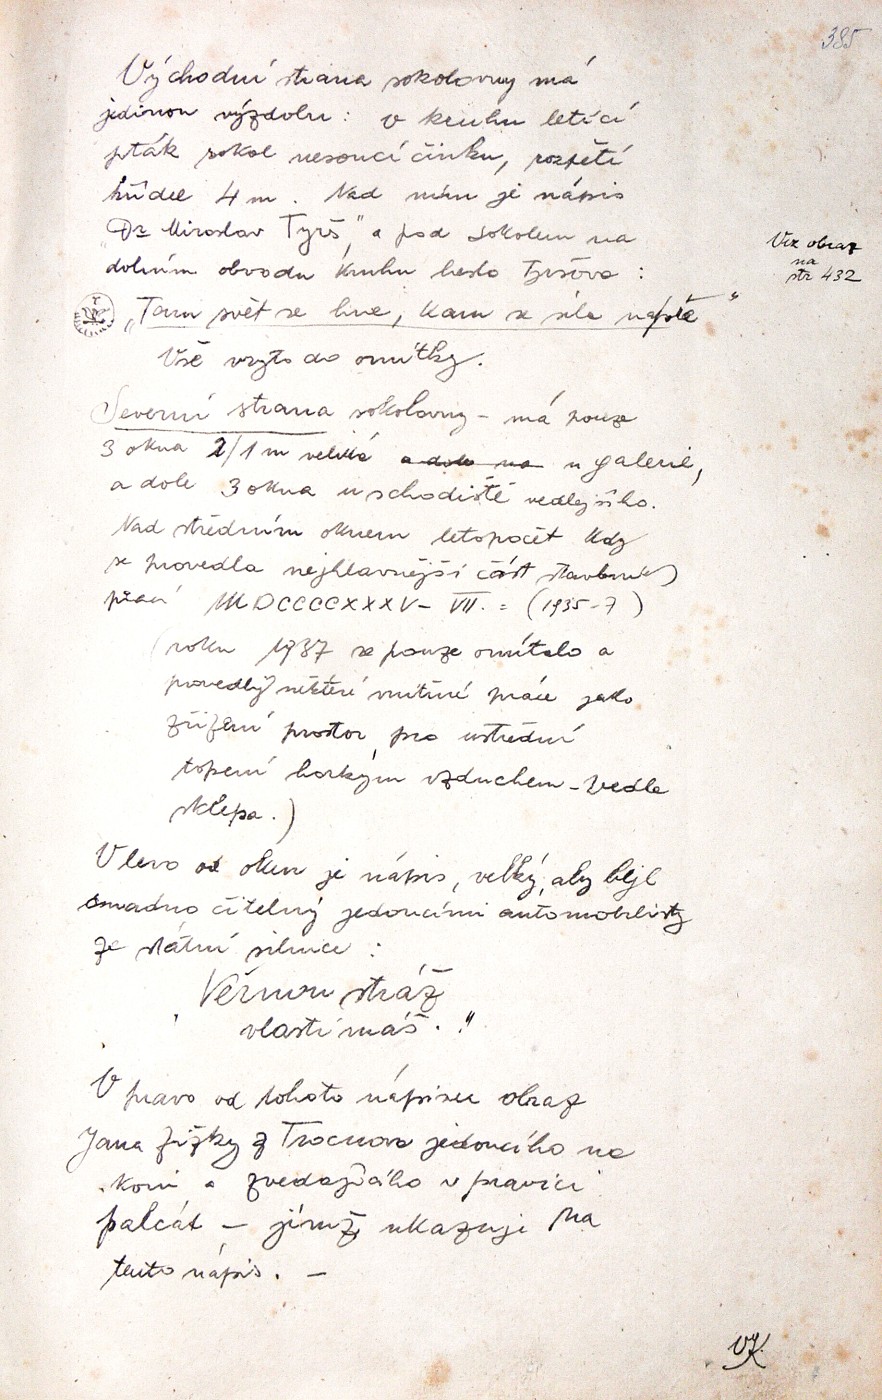 385
Východní strana sokolovny má
jedinou výzdobu: v kruhu letící
pták sokol nesoucí činku, rozpětí
křídel 4 m. Nad ním je nápis
"Dr Miroslav Tyrš", a pod sokolem na
dolním obvodu kruhu heslo Tyršovo:
Viz obraz
na
str 432
„Tam svět se hne, kam se síla napře"
Vše vryto do omítky.
Severní strana sokolovny - má pouze
3 okna 2/1 m veliká a dole na u galerie,
a dole 3 okna u schodiště vedlejšího.
Nad středním oknem letopočet kdy
se provedla nejhlavnější část stavebních
prací MDCCCCXXXV - VII. = (1935-7)
(roku 1937 se pouze omítalo a
provedly některé vnitřní práce jako
zřízení prostor pro ustřední
topení horkým vzduchem - vedle
sklepa.)
Vlevo od oken je nápis, velký, aby byl
snadno čitelný jedoucími automobilisty
ze státní silnice:
Věrnou stráž
vlasti máš."
V pravo od tohoto nápisu obraz
Jana Žižky z Trocnova jedoucího na
koni a zvedajícího v pravici
palcát - jímž ukazuje na
tento nápis. -
VK